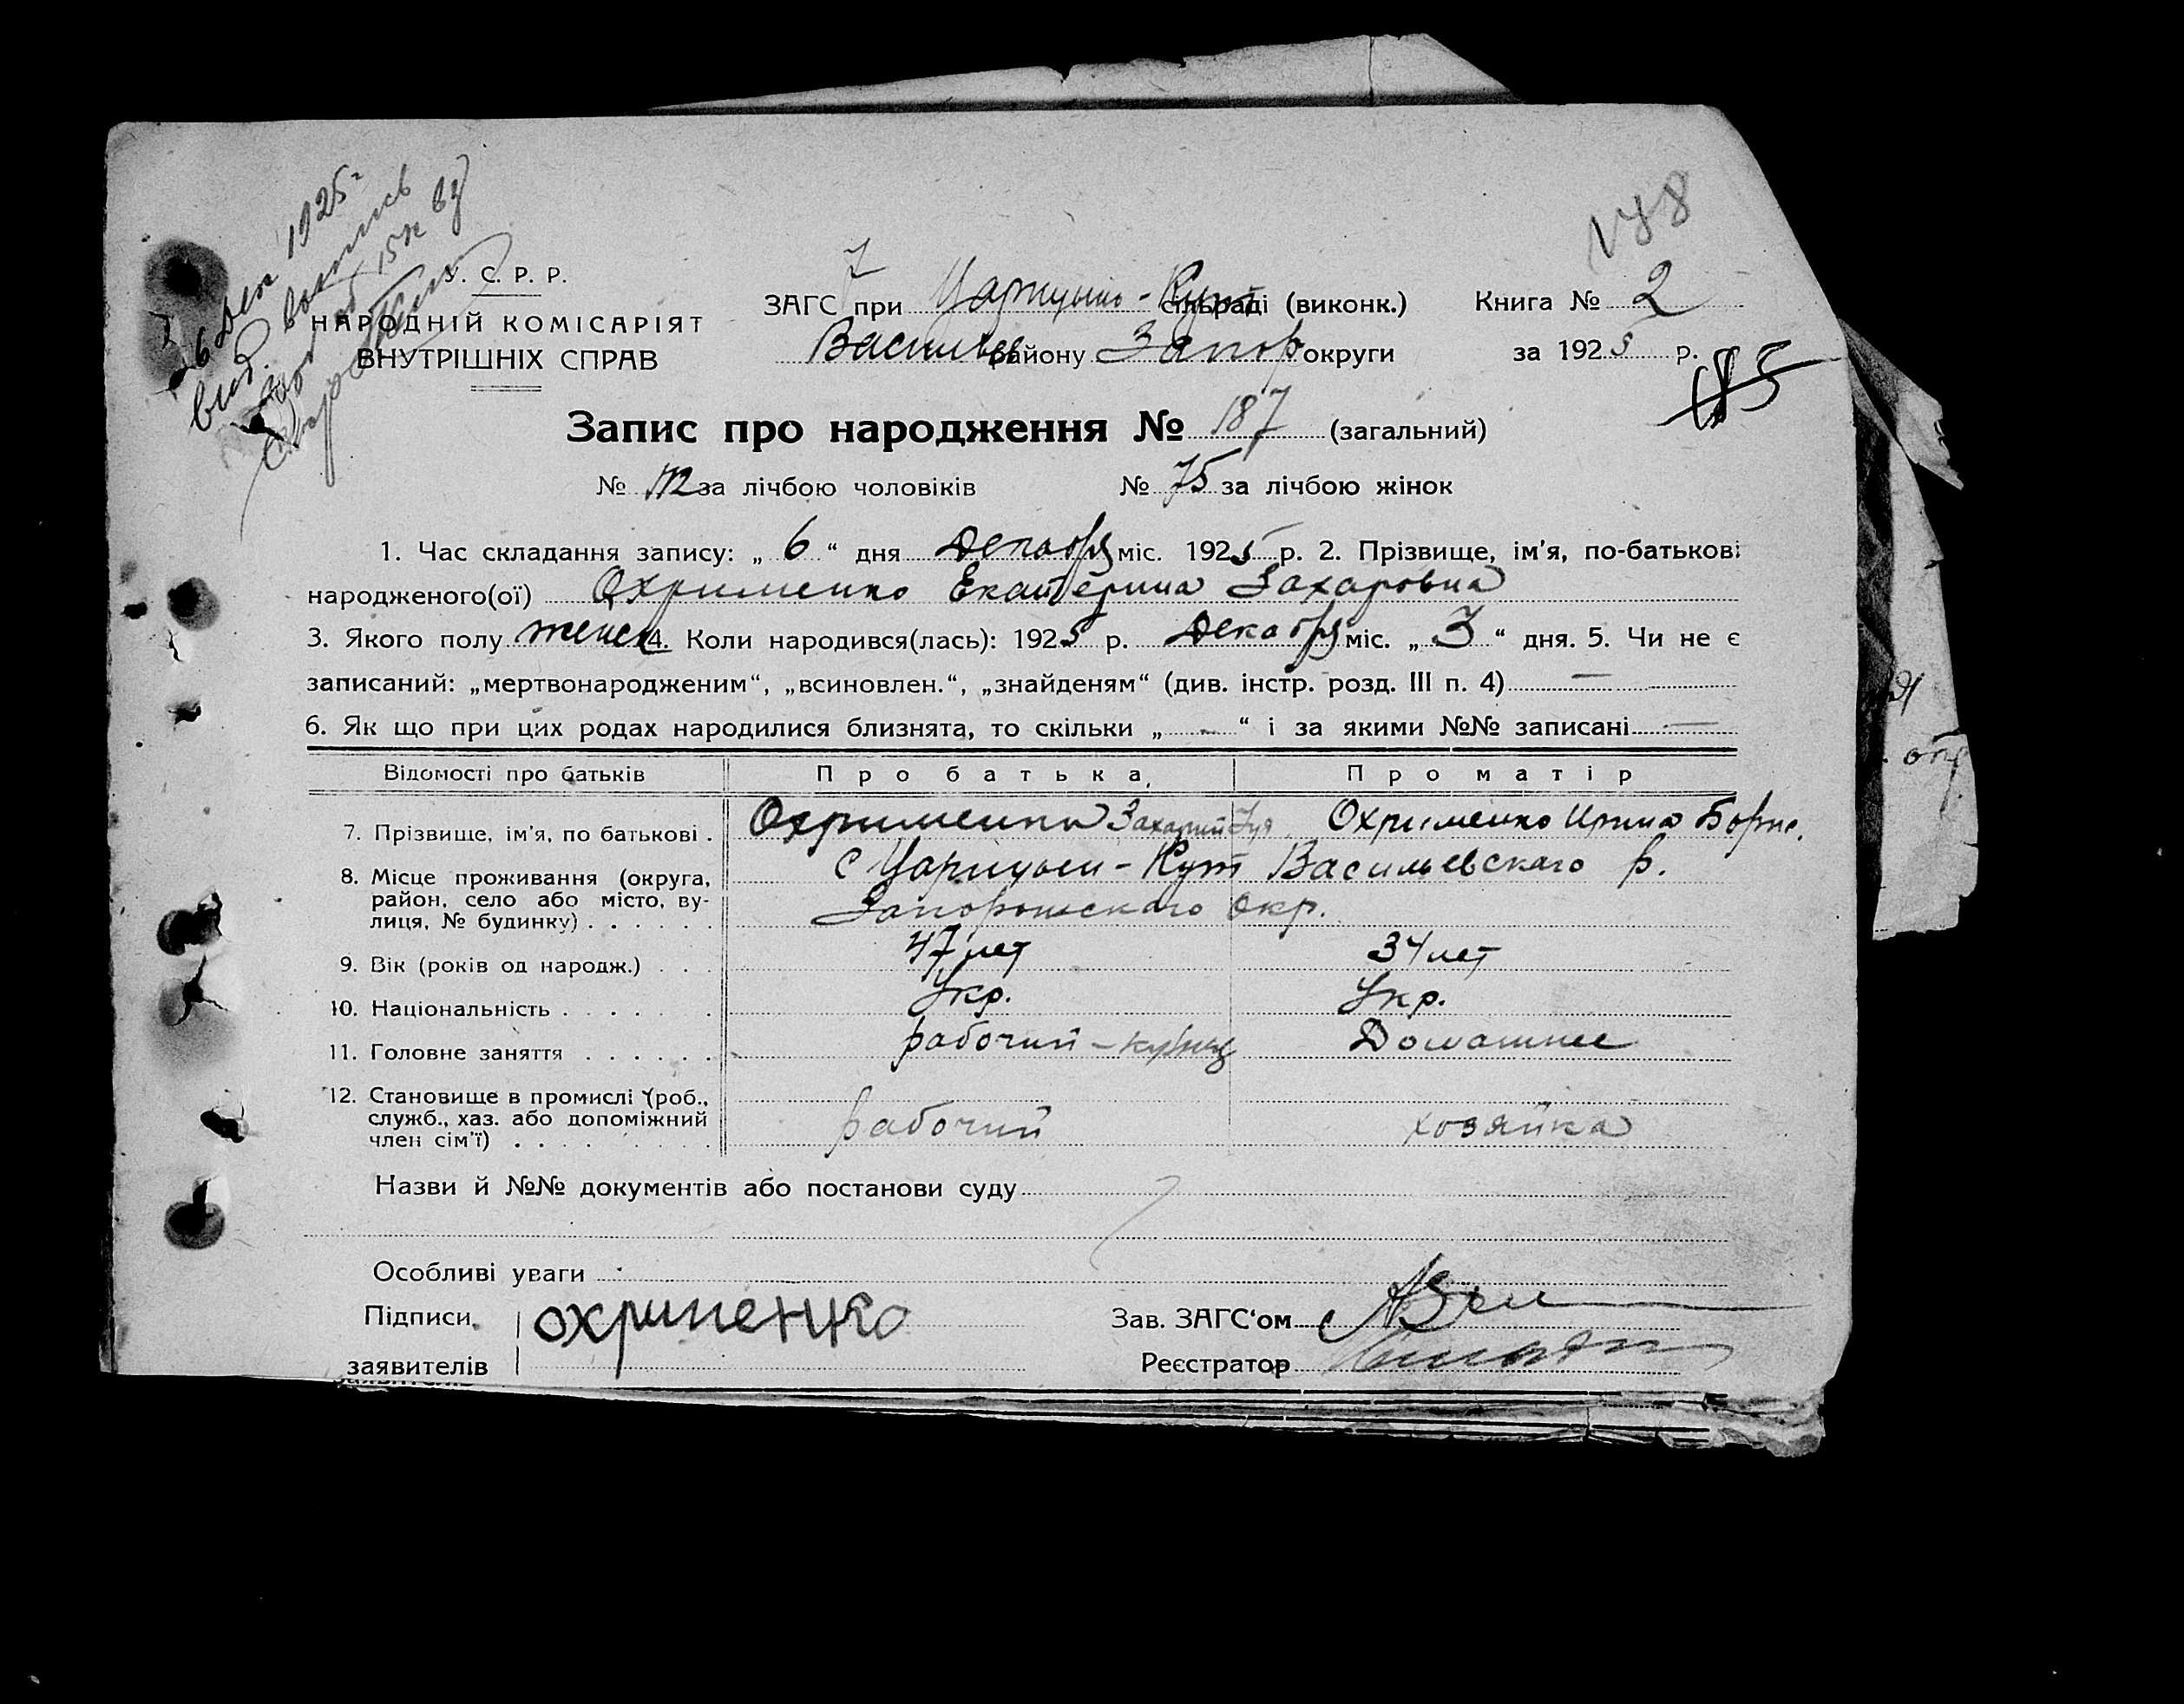 1925 г
У. С. Р. Р.
НАРОДНІЙ КОМІСАРІЯТ
ВНУТРІШНІХ СПРАВ
ЗАГС при Царицыно-Кут сільраді (виконк.)
Васильев району Запор округи
Книга № 2
за 1925 р.
185
Запис про народження № 187 (загальний)
№ 112 за лічбою чоловіків № 75 за лічбою жінок
1. Час складання запису: „ 6 “ дня Декабря міс. 1925 р. 2. Прізвище, ім'я, по-батькові
народженого(ої) Охрименко Екатерина Захаровна
3. Якого полу женск 4. Коли народився(лась): 1925 р. Декабря міс. „ 3 “ дня. 5. Чи не є
записаний: „мертвонародженим“, „всиновлен.“, „знайденям“ (див. інстр. розд. III п. 4) —
6. Як що при цих родах народилися близнята, то скільки „ — “ і за якими №№ записані —
Відомості про батьків Про батька Про матір
7. Прізвище, ім'я, по батькові . Охрименко Захарий Охрименко Ирина Борис.
8. Місце проживання (округа, район, село або місто, ву-
лиця, № будинку) . . . . . . с Царицын-Кут Васильевскаго р.
Запорожскаго окр.
9. Вік (років од народж.) . . . 47 лет 34 лет
10. Національність . . . . . . Укр. Укр.
11. Головне заняття . . . . . . рабочий - кузнец Домашнее
12. Становище в промислі (роб.,
служб., хаз. або допоміжний
член сім'ї) . . . . . . рабочий хозяйка
Назви й №№ документів або постанови суду
Особливі уваги
Підписи охрименко Зав. ЗАГС'ом
заявителів Реєстратор